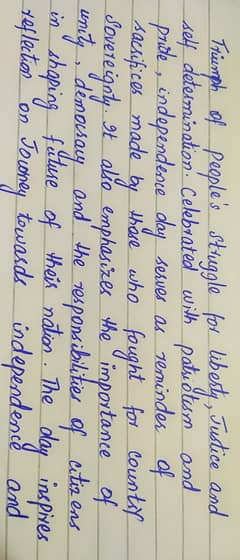 Triumph of people's struggle for liberty, Justice and
self determination. Celebrated with patriotism and
pride, independence day serves as reminder of
sacrifices made by those who fought for country
Sovereignty. It also emphasizes the importance of
unity, democracy and the responsibilities of citizens
in shaping future of their nation. The day inspires
reflection on Journey towards independence and